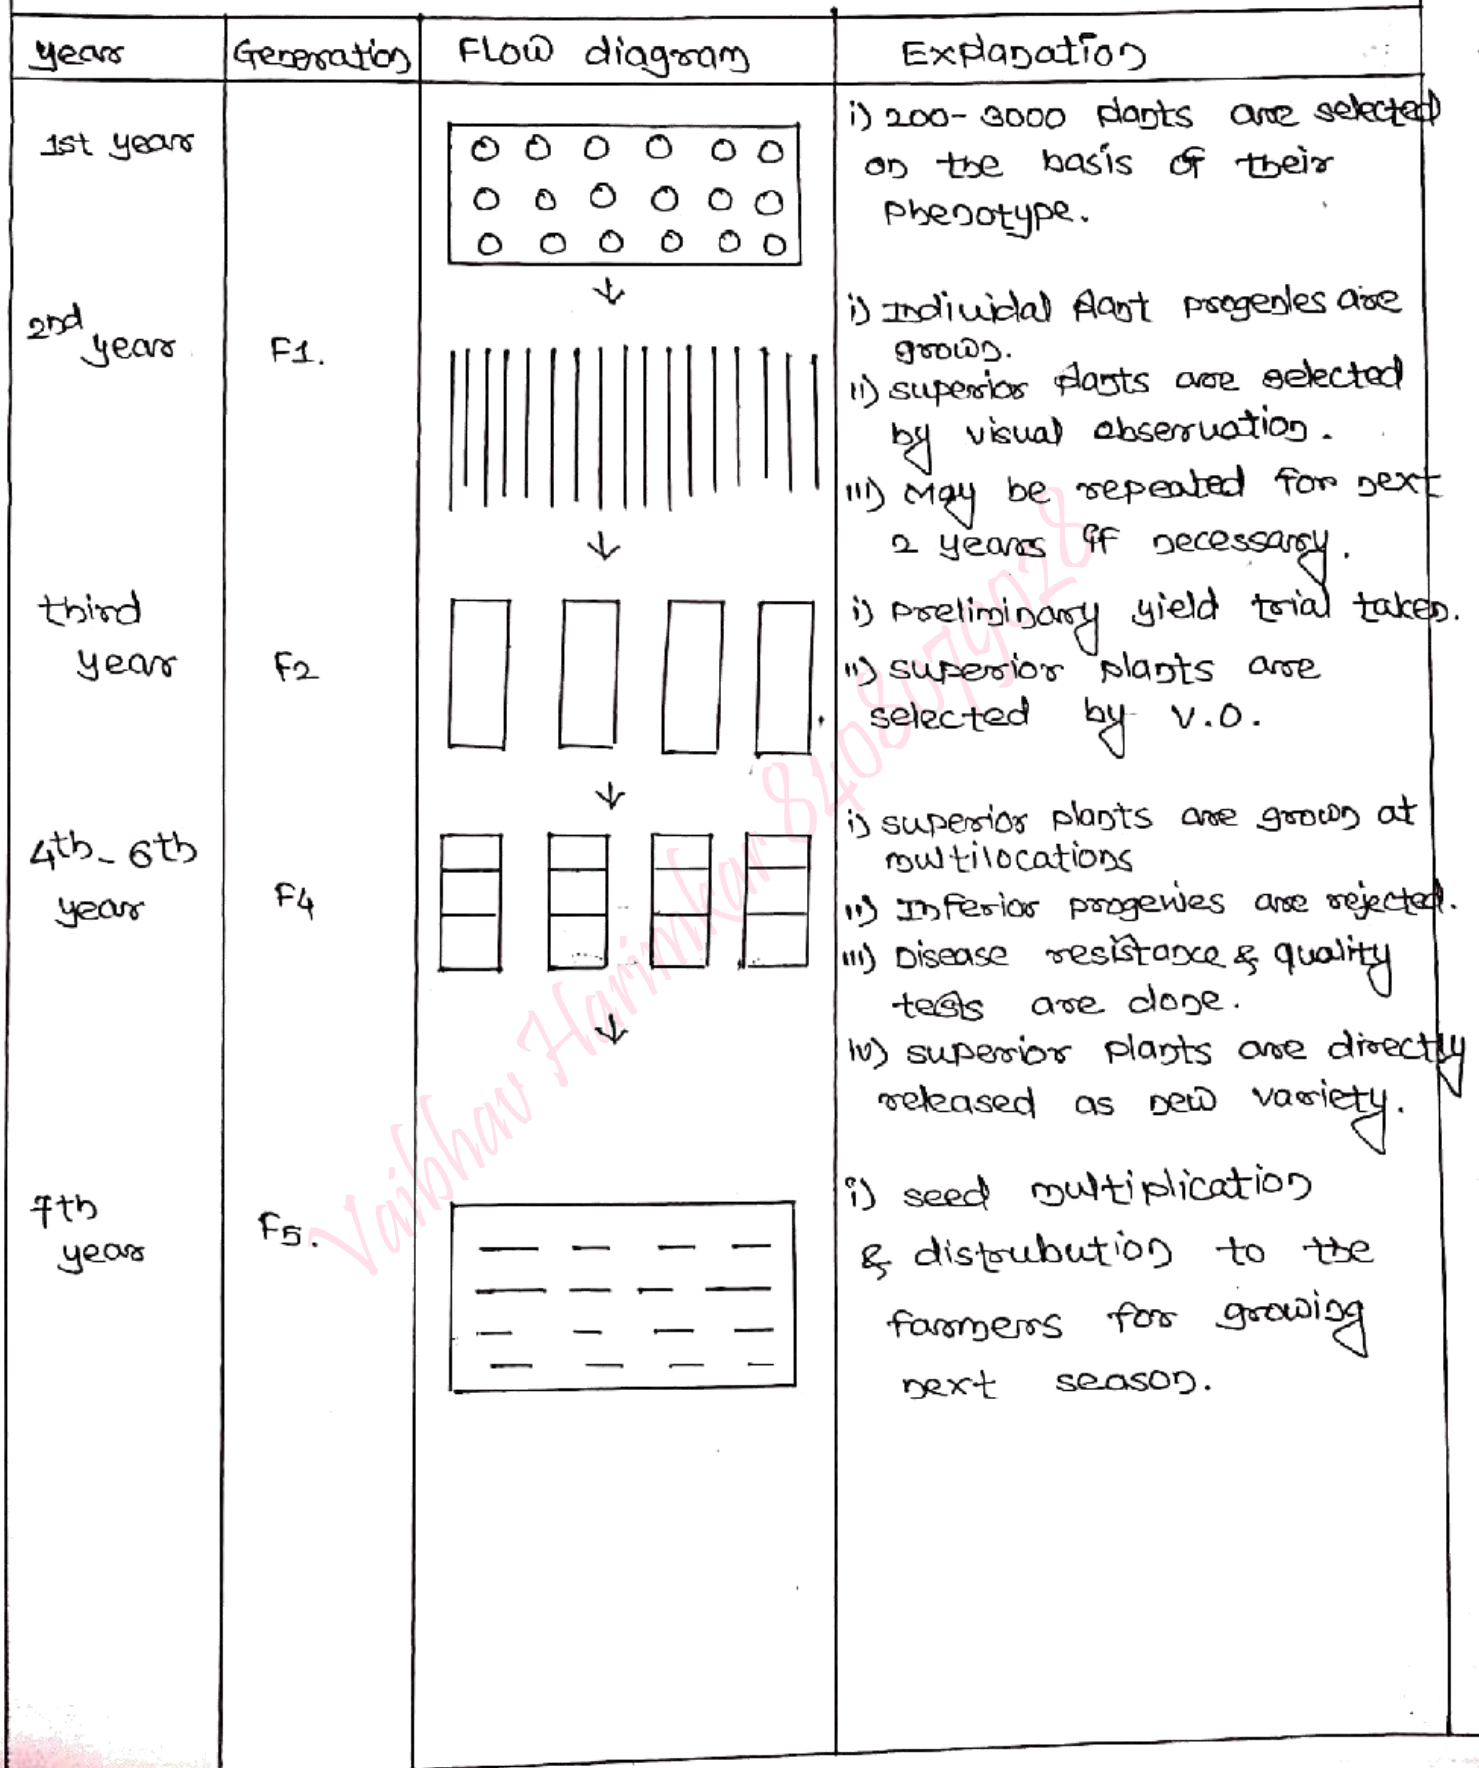 Year Generation Flow diagram Explanation
1st year
i) 200-3000 plants are selected
on the basis of their
phenotype.
2nd
year
F1.
i) Individal plant progenies are
grown.
ii) superior plants are selected
by visual observation.
iii) May be repeated for next
2 years if necessary.
third
year
F2
i) Preliminary yield trial taken.
ii) superior plants are
selected by V.O.
4th-6th
year
F4
i) superior plants are grown at
multilocations
ii) Inferior progenies are rejected.
iii) Disease resistance & quality
tests are done.
iv) superior plants are directly
released as new variety.
7th
year
F5.
i) seed multiplication
& distrubution to the
farmers for growing
next season.
Vaibhav Harimkar 8408079028